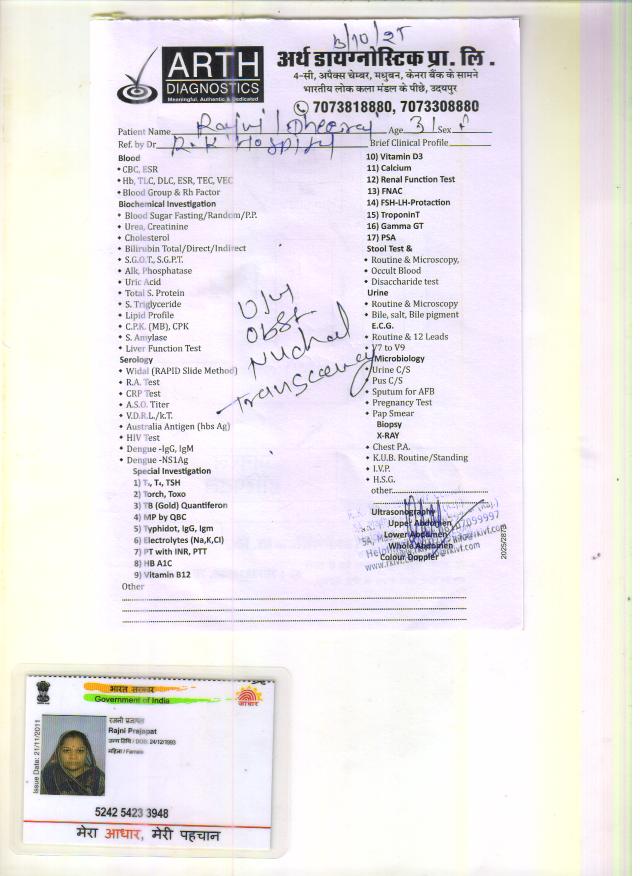 13/10/25
ARTH
DIAGNOSTICS
Meaningful, Authentic & Dedicated
अर्थ डायग्नोस्टिक प्रा. लि .
4-सी, अपैक्स चेम्बर, मधुबन, केनरा बैंक के सामने
भारतीय लोक कला मंडल के पीछे, उदयपुर
7073818880, 7073308880
Patient Name Rajni / Dheeraj Age 31 Sex F
Ref. by Dr. R.K Hospital Brief Clinical Profile
Blood
CBC, ESR
Hb, TLC, DLC, ESR, TEC, VEC
Blood Group & Rh Factor
Biochemical Investigation
Blood Sugar Fasting/Random/P.P.
Urea, Creatinine
Cholesterol
Bilirubin Total/Direct/Indirect
S.G.O.T., S.G.P.T.
Alk, Phosphatase
Uric Acid
Total S. Protein
S. Triglyceride
Lipid Profile
C.P.K. (MB), CPK
S. Amylase
Liver Function Test
Serology
Widal (RAPID Slide Method)
R.A. Test
CRP Test
A.S.O. Titer
V.D.R.L./k.T.
Australia Antigen (hbs Ag)
HIV Test
Dengue -IgG, IgM
Dengue -NS1Ag
Special Investigation
1) T₃, T₄, TSH
2) Torch, Toxo
3) TB (Gold) Quantiferon
4) MP by QBC
5) Typhidot, IgG, Igm
6) Electrolytes (Na,K,Cl)
7) PT with INR, PTT
8) HB A1C
9) Vitamin B12
Other
10) Vitamin D3
11) Calcium
12) Renal Function Test
13) FNAC
14) FSH-LH-Protaction
15) TroponinT
16) Gamma GT
17) PSA
Stool Test &
Routine & Microscopy,
Occult Blood
Disaccharide test
Urine
Routine & Microscopy
Bile, salt, Bile pigment
E.C.G.
Routine & 12 Leads
V7 to V9
Microbiology
Urine C/S
Pus C/S
Sputum for AFB
Pregnancy Test
Pap Smear
Biopsy
X-RAY
Chest P.A.
K.U.B. Routine/Standing
I.V.P.
H.S.G.
other
Ultrasonography
Upper Abdomen
Lower Abdomen
Whole Abdomen
Colour Doppler
www.rkivf.com
2025/2873
Obst
Nuchal
Transcency
भारत सरकार
Government of India
आधार
Issue Date: 21/11/2011
रजनी प्रजापत
Rajni Prajapat
जन्म तिथि / DOB: 24/12/1993
महिला / Female
5242 5423 3948
मेरा आधार, मेरी पहचान